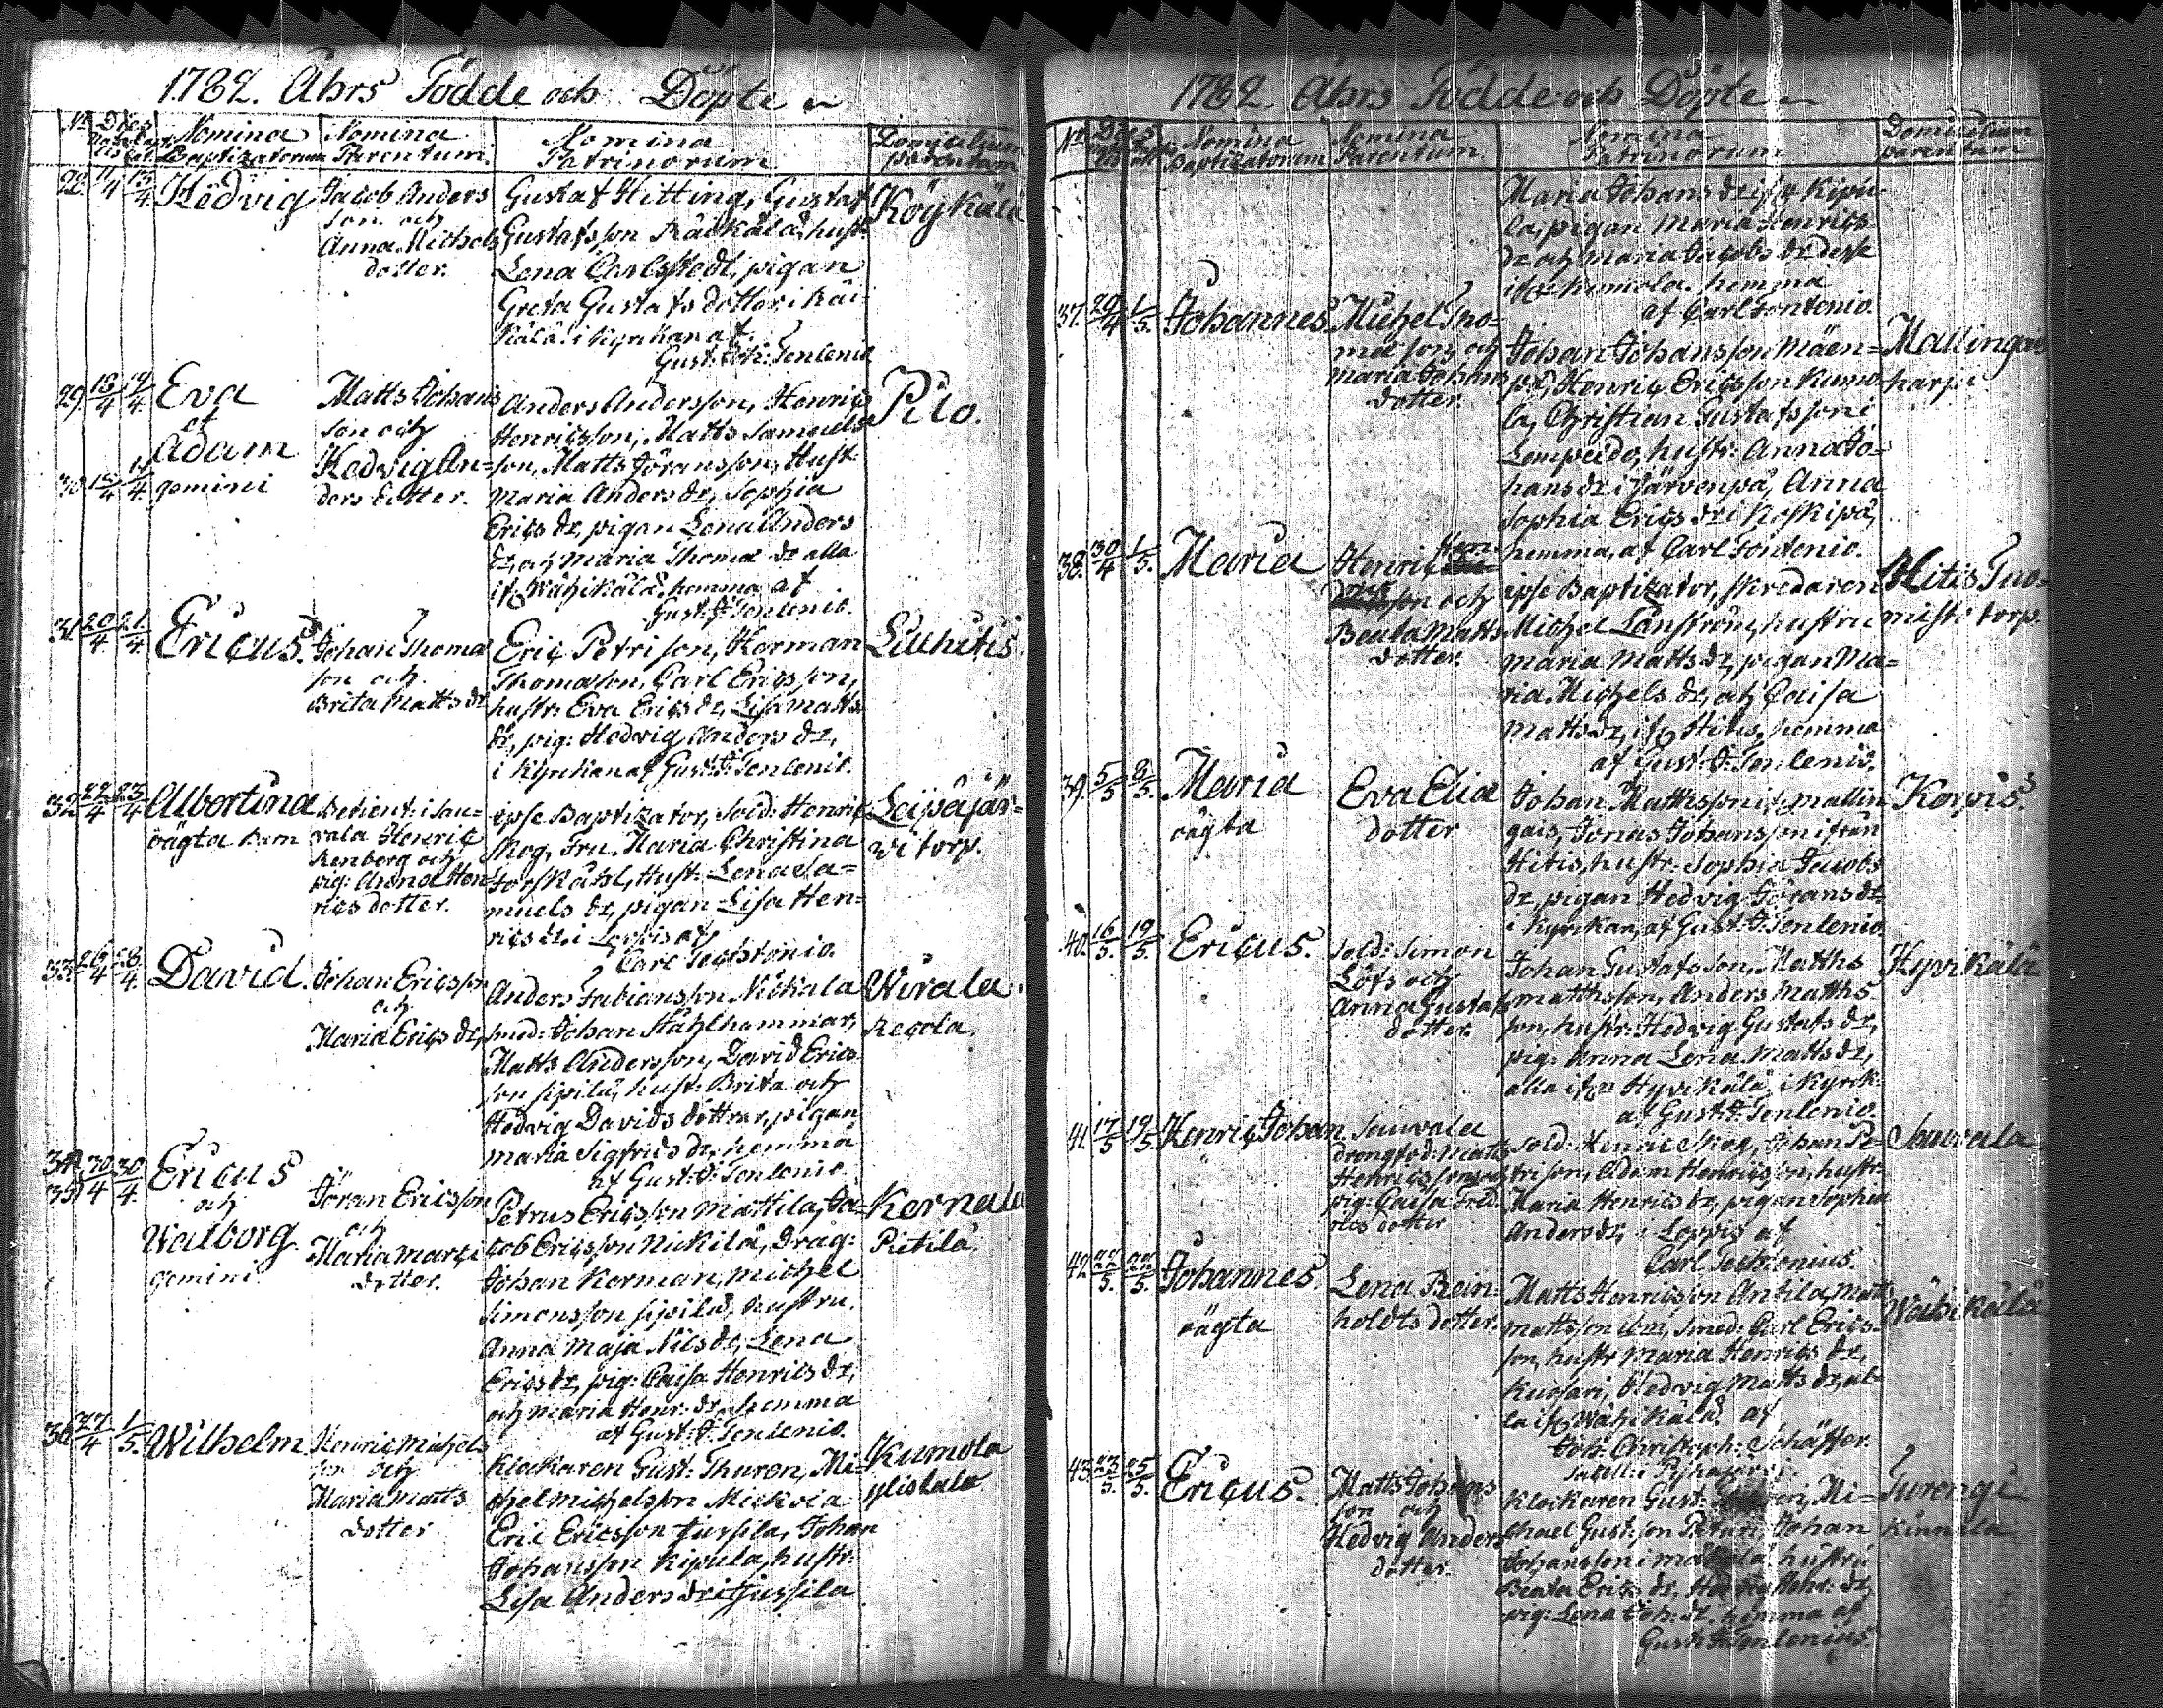 1782. Åhrs Födde och Döpte
No Dies Nomina Baptizatorum Nomina Parentum. Nomina Patrinorum Domicilium parentum
28. 11/4 13/4 Hedvig
Jacob Anders
son och
Anna Michels
dotter.
Gustaf Hitting, Gustaf
Gustafsson Räikälä, hust:
Lena Carlstedt, pigan
Greta Gustafs dotter i Räi-
kälä. i Kyrkan af
Gust: Joh: Tenlenio
Köykälä
29. 13/4 14/4 Eva
et
Adam
30. 15/4 gemini
Matts Johans
son och
Hedvig An-
ders dotter.
Anders Andersson, Henric
Henricsson, Matts Samuels
son, Matts Jöransson, Hust:
Maria Anders dr, Sophia
Erics dr, pigan Lena Anders
dr, och Maria Thomæ dr alla
ifr. Wähikälä. hemma af
Gust: J: Tenlenio.
Pilo.
31. 20/4 21/4 Ericus.
Johan Thomæ
son och
Brita Matts dr
Eric Petrison, Herman
Thomason, Carl Ericsson,
hustr: Eva Erics dr, Lisa Matts
dr, pig: Hedvig Anders dr,
i Kyrkan af Gust: J: Tenlenio.
Liuhitis.
32. 22/4 23/4 Albertina
oägta barn
Betient: i Sau-
vala Henric
Renberg och
pig: Anna Hen-
rics dotter.
ipse Baptizator, Sold: Henric
Skog, Fru Maria Christina
Forskåhl, Hust: Lena Sa-
muels dr, pigan Lisa Hen-
rics dr. i Loppis af
Carl
Leipäjär-
wi torp.
33. 26/4 28/4 David.
Johan Ericsson
och
Maria Erics dr,
Anders Fabiansson Nickala
smed: Johan Stahlhammar,
Matts Andersson, David Erics
son sipilä, hust: Brita och
Hedvig Davids döttrar, pigan
Maria Sigfrids dr, hemma
af Gust: J: Tenlenio.
Wirala.
Regola.
34. 35. 30/4 30/4 Ericus
och
Walborg
gemini
Jöran Ericsson
och
Maria Marci
dotter.
Petrus Ericsson Mattila, Ja-
cob Ericsson Nickilä, Drag:
Johan Korman, Michel
Simonsson sipilä, hustru
Anna Maja Nils dr, Lena
Erics dr, pig: Caisa Henrics dr,
och Maria Henr: dr, hemma
af Gust: J: Tenlenio.
Kernala
Pietilä.
36. 27/4 1/5. Wilhelm
Henric Michels
son och
Maria Matts
dotter
Klockaren Gust: Thuren, Mi-
chel Michelsson Mickola
Eric Ericsson Jussila, Johan
Johansson Kipula, hustr:
Lisa Anders dr i Jussila
Kumola
ylistalo
1782. Åhrs Födde och Döpte
No Dies Nomina Baptizatorum Nomina Parentum Nomina Patrinorum Domicilium parentum
Maria Johans dr ifr Kipu-
la, pigan Maria Henrics
dr och Maria Jacobs dr desse
ifr Kumola. hemma
af Carl
37. 29/4 1/5. Johannes
Michel Tho-
mæ son och
Maria Johans
dotter.
Johan Johansson Mäen-
pä, Henric Ericsson Kumo-
la, Christian Gustafsson i
hustr: Anna Jo-
hans dr i Järvenpä, Anna
Sophia Erics dr i Koskipä,
hemma, af Carl
Mallingais
harju
38. 30/4 1/5. Maria
Henric
son och
Beata Matts
dotter.
ipse Baptizator, skredaren
Michel Lånström, hustru
Maria Matts dr, pigan Ma-
ria Michels dr, och Caisa
Matts dr, ifr Hitis, hemma
af Gust: J: Tenlenio.
Hitis Tuo-
misto torp.
39. 5/5 8/5. Maria
oägta
Eva Elia
dotter
Johan Matthsson if. Mallin
gais, Jonas Johansson ifrån
Hitis, hustr: Sophia Jacobs
dr, pigan Hedvig Jörans dr
i Kyrkan, af Gust: J: Tenlenio.
Korpis.
40. 16/5. 19/5. Ericus.
Sold: Simon
Löfs och
Anna Gustafs
dotter.
Johan Gustafsson, Matths
Matthsson, Anders Matths
son, hustr: Hedvig Gustafs dr,
pig: Anna Lena Matts dr,
alla ifrn Hyvikälä. i Kyrk:
af Gust: J: Tenlenio.
Hyvikälä
41. 17/5 19/5. Henric Johan
Sauvala
drong Matts
Henricsson och
pig: Caisa Fred-
rics dotter
Sold: Henric Skog, Johan Pe-
trison, Adam Henricsson, hustr:
Maria Henrics dr, pigan Sophia
Anders dr, i Loppis af
Carl
Sauvala
42. 22/5. 22/5. Johannes.
oägta
Lena Rein-
holdts dotter.
Matts Henricsson Anttila, Matts
Mattsson smed: Carl Erics-
son, hustr Maria Henrics dr,
Kuosari, Hedvig Matts dr, al-
la ifr Wähikälä. af
Joh: Christoph: Schäffer.
Wähikälä
43. 23/5. 25/5. Ericus.
Matts Johans
son och
Hedvig Anders
dotter.
Klockaren Gust: Mi-
chael Gust:son Johan
Johansson i hustru
Beata Erics dr,
pig: Lena Joh: dr. hemma af
Gust: J: Tenlenius.
Turengi
Kinnala